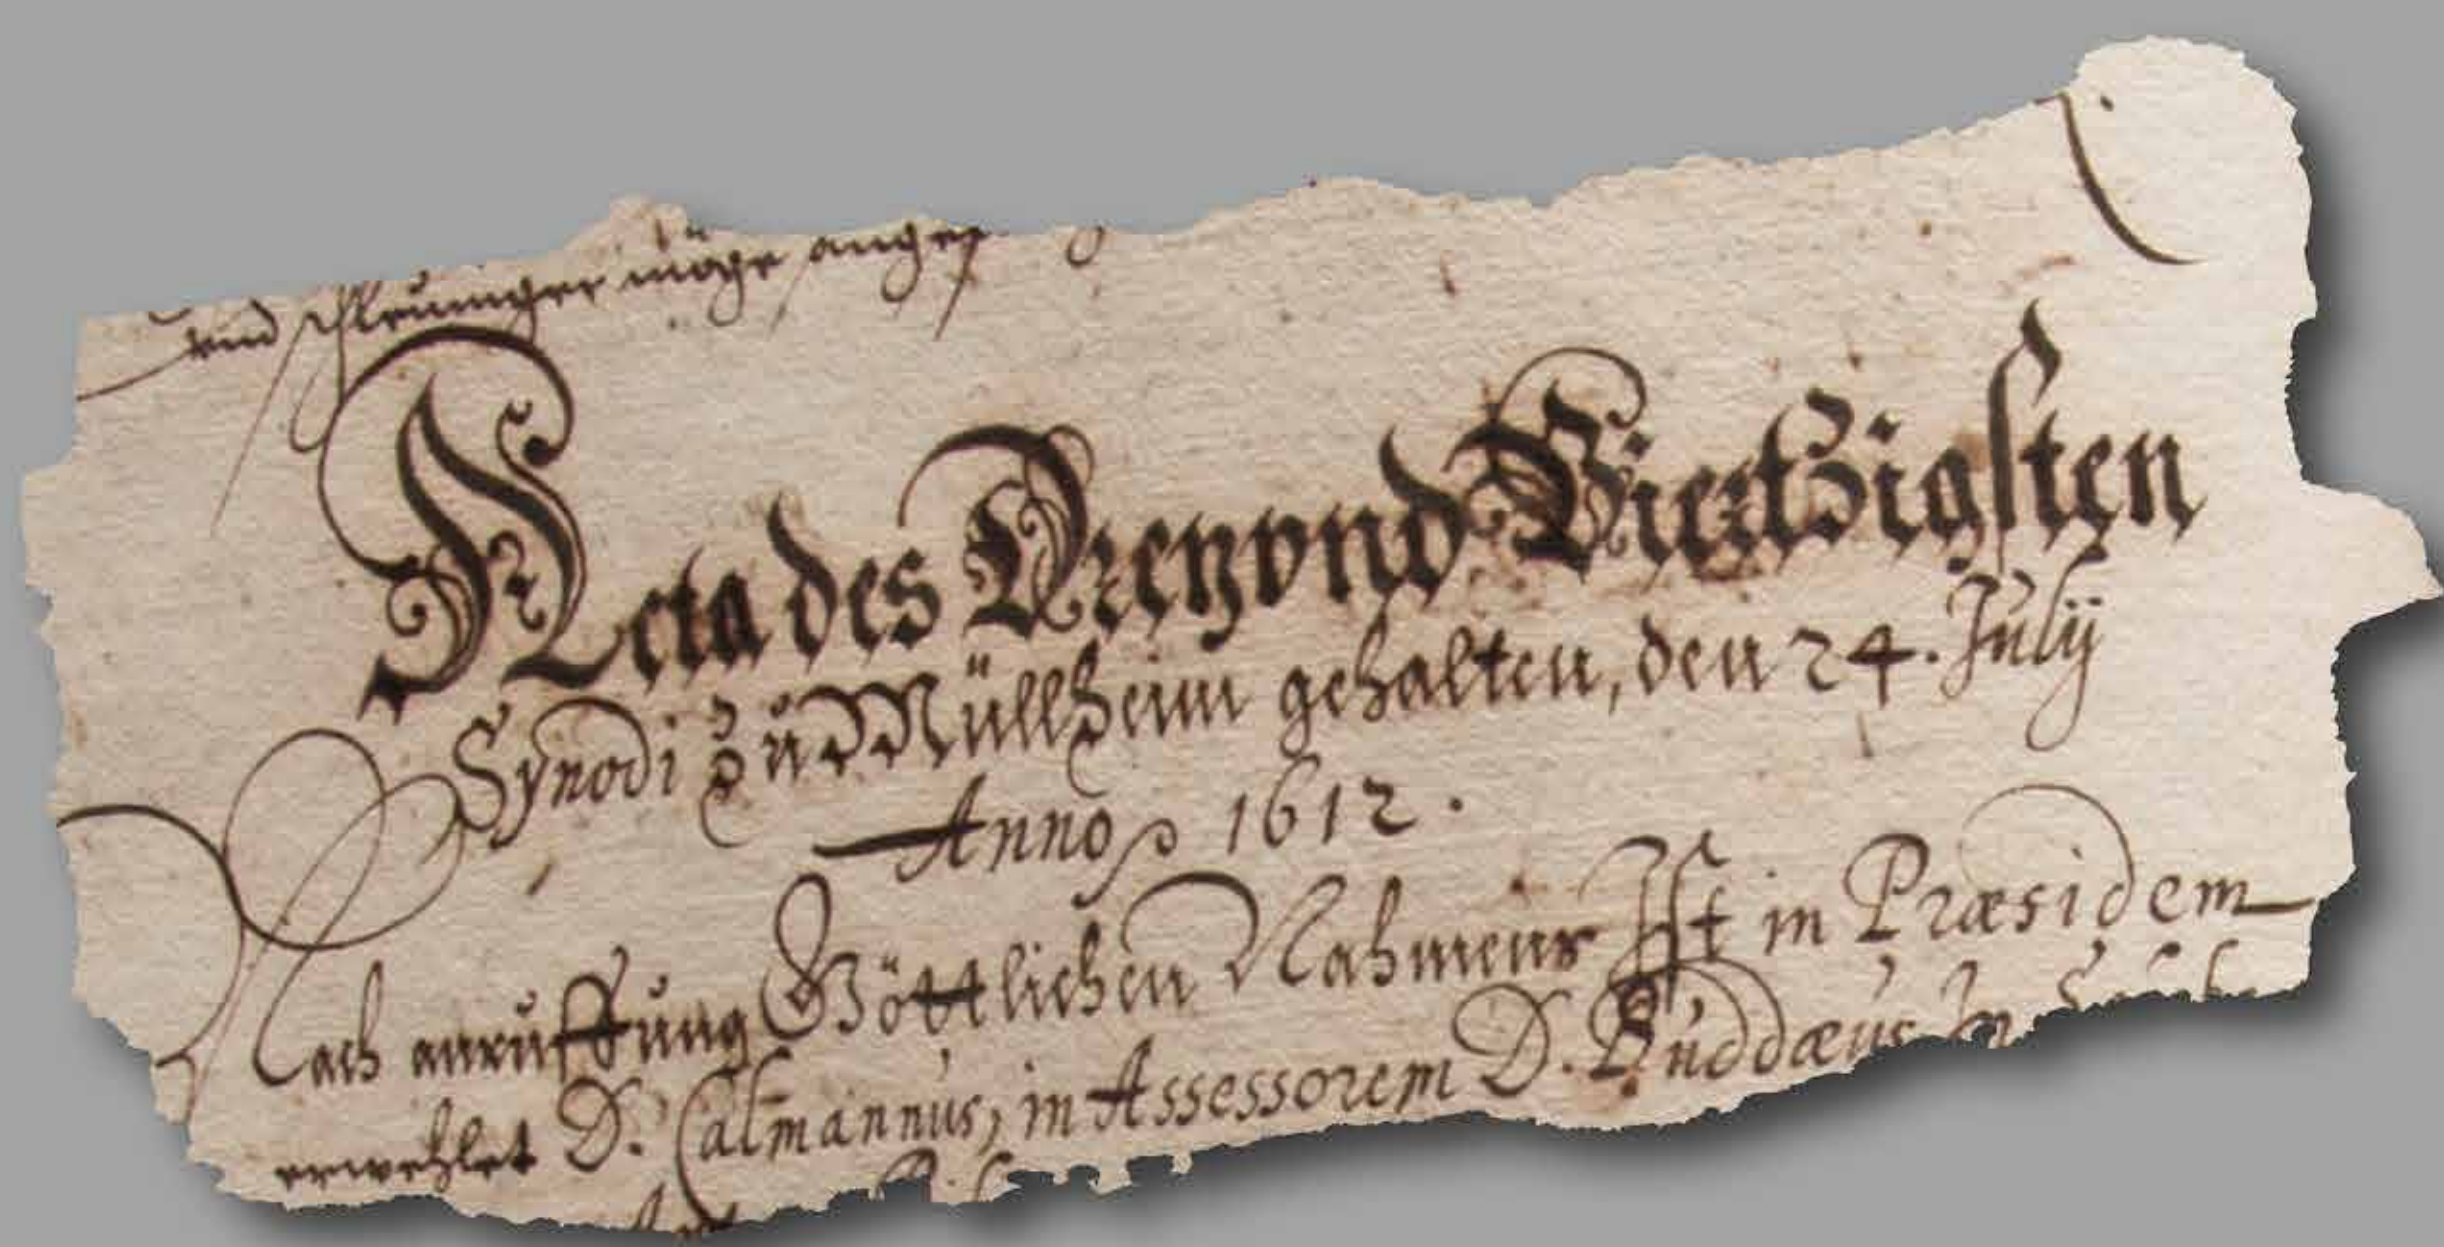 vnd schleuniger möge
Acta des Dreyvnd Viertzigsten
Synodi zu Müllheim gehalten, den 24. Julij
Anno 1612.
Nach anruffung Göttlichen Nahmens Ist in Præsidem
erwehlet D. Calmannus, in Assessorem D. Buddæus In